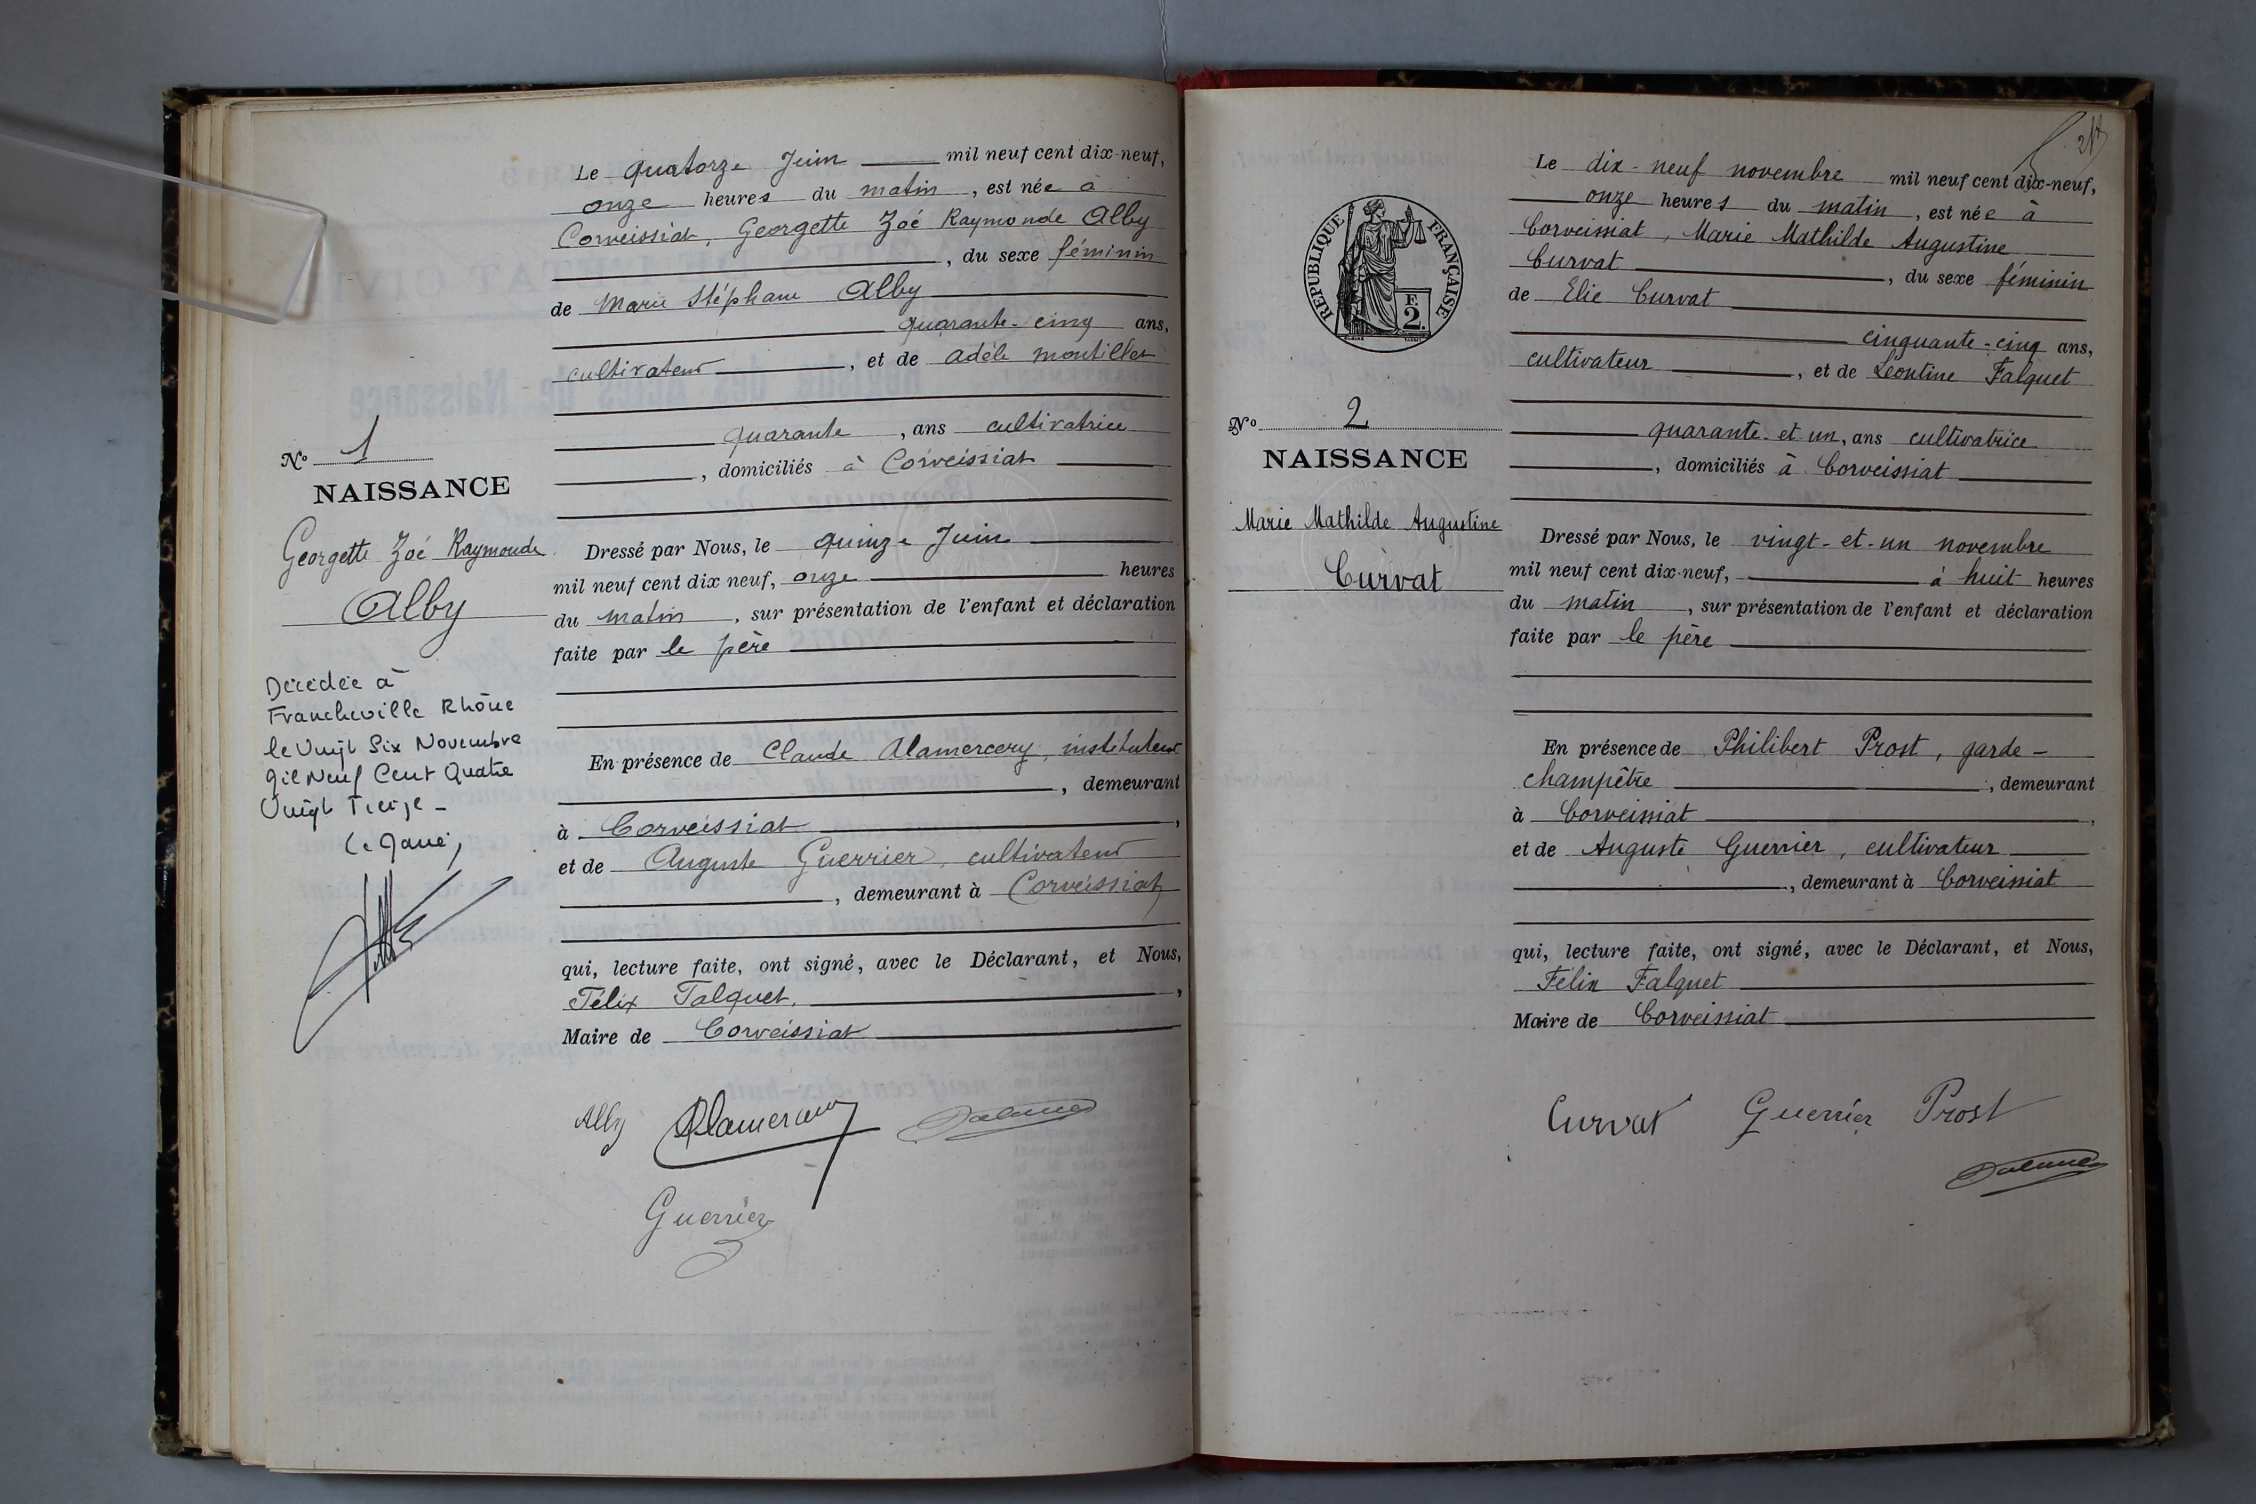 Le quatorze Juin mil neuf cent dix-neuf,
onze heures du matin, est née à
Corveissiat, Georgette Zoé Raymonde Alby
, du sexe féminin
de Marie Stéphane Alby
quarante-cinq ans,
cultivateur, et de Adèle Montillet
quarante, ans cultivatrice
, domiciliés à Corveissiat
No 1
NAISSANCE
Georgette Zoé Raymonde
Alby
Dressé par Nous, le quinze Juin
mil neuf cent dix neuf, onze heures
du matin, sur présentation de l'enfant et déclaration
faite par le père
Décédée à
Francheville Rhône
le Vingt Six Novembre
Mil Neuf Cent Quatre
Vingt Treize -
Le Maire,
En présence de Claude Alamercery, instituteur
, demeurant
à Corveissiat,
et de Auguste Guerrier, cultivateur
, demeurant à Corveissiat
qui, lecture faite, ont signé, avec le Déclarant, et Nous,
Félix Falquet,
Maire de Corveissiat
Alby Alamercery
Guerrier
Le dix-neuf novembre mil neuf cent dix-neuf,
onze heures du matin, est née à
Corveissiat, Marie Mathilde Augustine
Curvat, du sexe féminin
de Elie Curvat
cinquante-cinq ans,
cultivateur, et de Léontine Falquet
quarante-et un, ans cultivatrice
, domiciliés à Corveissiat
RÉPUBLIQUE FRANÇAISE
F.
2.
No 2
NAISSANCE
Marie Mathilde Augustine
Curvat
Dressé par Nous, le vingt-et-un novembre
mil neuf cent dix-neuf, à huit heures
du matin, sur présentation de l'enfant et déclaration
faite par le père
En présence de Philibert Prost, garde-
champêtre, demeurant
à Corveissiat,
et de Auguste Guerrier, cultivateur
, demeurant à Corveissiat
qui, lecture faite, ont signé, avec le Déclarant, et Nous,
Félix Falquet
Maire de Corveissiat
Curvat Guerrier Prost